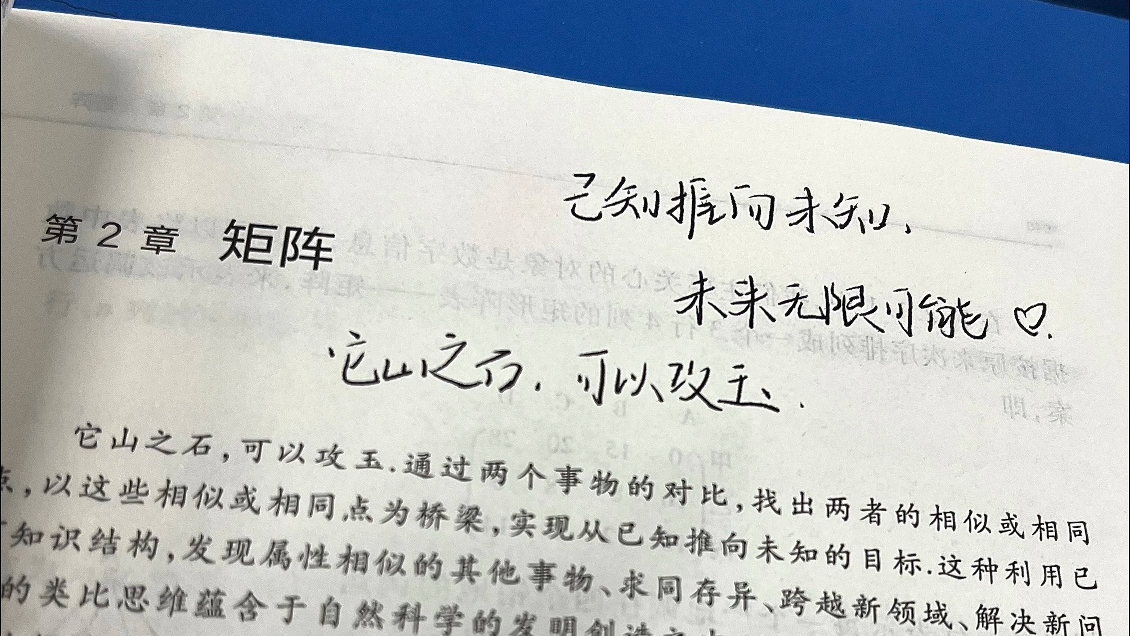 已知推向未知,
第 2 章 矩阵
未来无限可能 ♡.
它山之石,可以攻玉.
它山之石,可以攻玉.通过两个事物的对比,找出两者的相似或相同
点,以这些相似或相同点为桥梁,实现从已知推向未知的目标.这种利用已
知识结构,发现属性相似的其他事物、求同存异、跨越新领域、解决新问
的类比思维蕴含于自然科学的发明创造